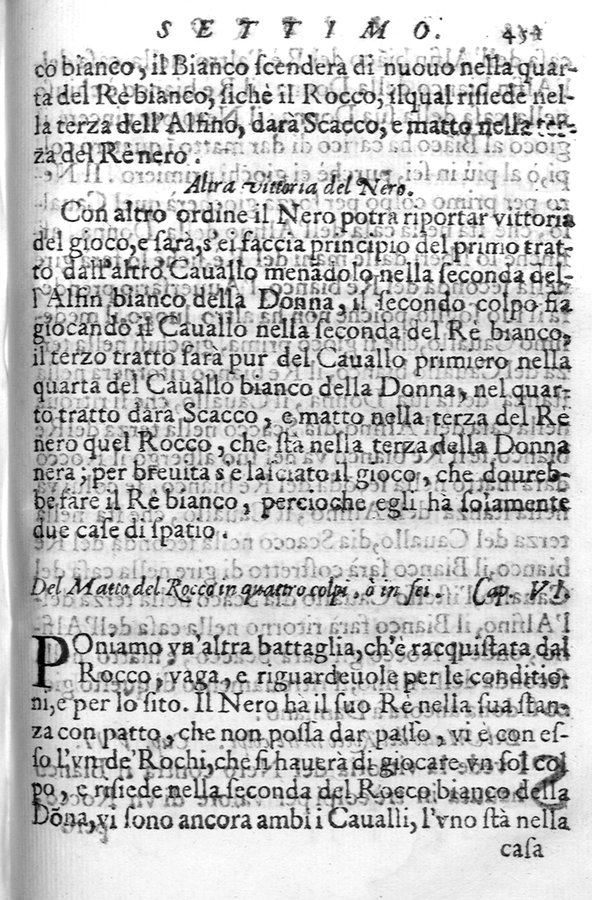 SETTIMO. 451
co bianco, il Bianco ſcenderà di nuouo nella quar-
ta del Rè bianco, ſichè il Rocco, ilqual riſiede nel-
la terza dell'Alfino, darà Scacco, e matto nella ter-
za del Rè nero.
Altra vittoria del Nero.
Con altro ordine il Nero potrà riportar vittoria
del gioco, e ſarà, s'ei faccia principio del primo trat-
to dall'altro Cauallo menãdolo nella ſeconda del-
l'Alfin bianco della Donna, il ſecondo colpo fia
giocando il Cauallo nella ſeconda del Rè bianco,
il terzo tratto ſarà pur del Cauallo primiero nella
quarta del Cauallo bianco della Donna, nel quar-
to tratto darà Scacco, e matto nella terza del Rè
nero quel Rocco, che ſtà nella terza della Donna
nera; per breuità s'è laſciato il gioco, che doureb-
be fare il Rè bianco, percioche egli hà ſolamente
due caſe di ſpatio.
Del Matto del Rocco in quattro colpi, ò in ſei. Cap. VI.
POniamo vn'altra battaglia, ch'è racquiſtata dal
Rocco, vaga, e riguardeuole per le conditio-
ni, e per lo ſito. Il Nero ha il ſuo Rè nella ſua ſtan-
za con patto, che non poſſa dar paſſo, vi è con eſ-
ſo l'vn de' Rochi, che ſi hauerà di giocare vn ſol col
po, e riſiede nella ſeconda del Rocco bianco della
Dõna, vi ſono ancora ambi i Caualli, l'vno ſtà nella
caſa